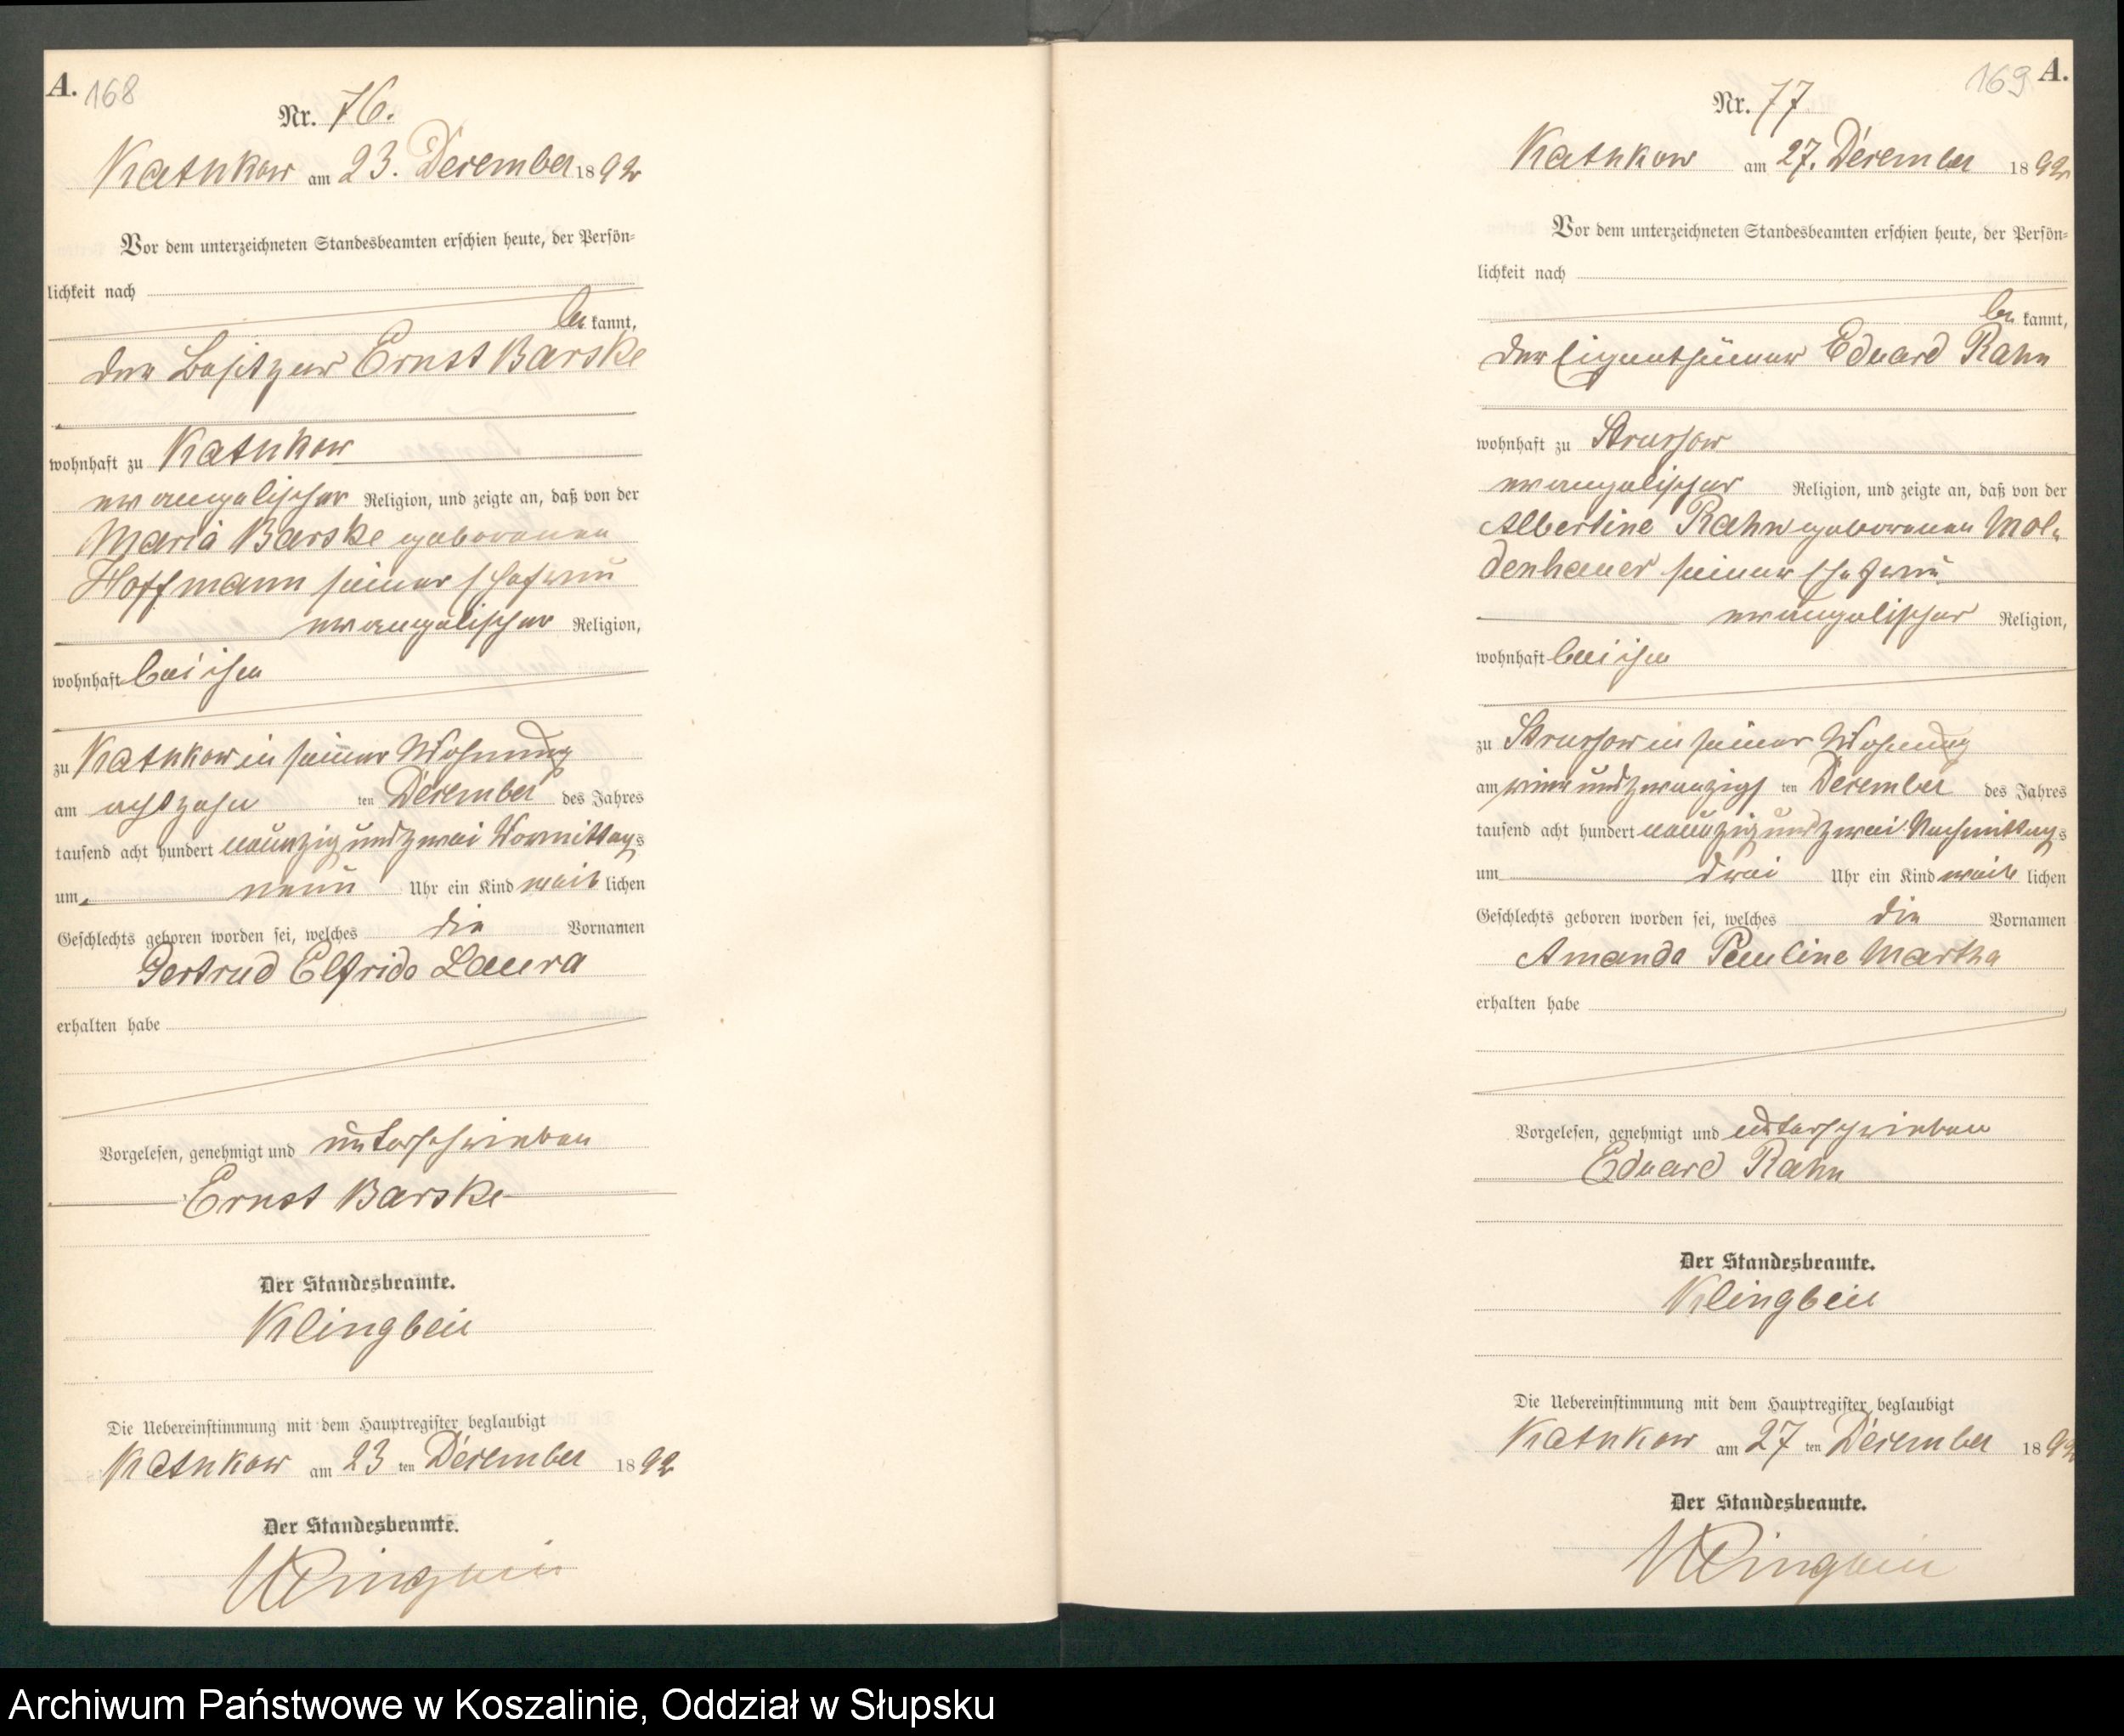 A. 168
Nr. 76.
Kathkow am 23. December 1892
Vor dem unterzeichneten Standesbeamten erschien heute, der Persön-
lichkeit nach
be kannt,
der Besitzer Ernst Barske
wohnhaft zu Kathkow
evangelischer Religion, und zeigte an, daß von der
Maria Barske geborenen
Hoffmann seiner Ehefrau
evangelischer Religion,
wohnhaft bei ihm
zu Kathkow in seiner Wohnung
am achtzehn ten December des Jahres
tausend acht hundert neunzig und zwei Vormittags
um neun Uhr ein Kind weib lichen
Geschlechts geboren worden sei, welches die Vornamen
Gertrud Elfride Laura
erhalten habe
Vorgelesen, genehmigt und unterschrieben
Ernst Barske
Der Standesbeamte.
Klingbeil
Die Uebereinstimmung mit dem Hauptregister beglaubigt
Kathkow am 23 ten December 1892
Der Standesbeamte.
Klingbeil
169 A.
Nr. 77
Kathkow am 27. December 1892
Vor dem unterzeichneten Standesbeamten erschien heute, der Persön-
lichkeit nach
be kannt,
der Eigenthümer Eduard Rahn
wohnhaft zu Strussow
evangelischer Religion, und zeigte an, daß von der
Albertine Rahn geborenen Mol-
denhauer seiner Ehefrau
evangelischer Religion,
wohnhaft bei ihm
zu Strussow in seiner Wohnung
am einundzwanzigs ten December des Jahres
tausend acht hundert neunzig und zwei Nachmittags
um drei Uhr ein Kind weib lichen
Geschlechts geboren worden sei, welches die Vornamen
Amanda Pauline Martha
erhalten habe
Vorgelesen, genehmigt und unterschrieben
Eduard Rahn
Der Standesbeamte.
Klingbeil
Die Uebereinstimmung mit dem Hauptregister beglaubigt
Kathkow am 27 ten December 1892
Der Standesbeamte.
Klingbeil
Archiwum Państwowe w Koszalinie, Oddział w Słupsku